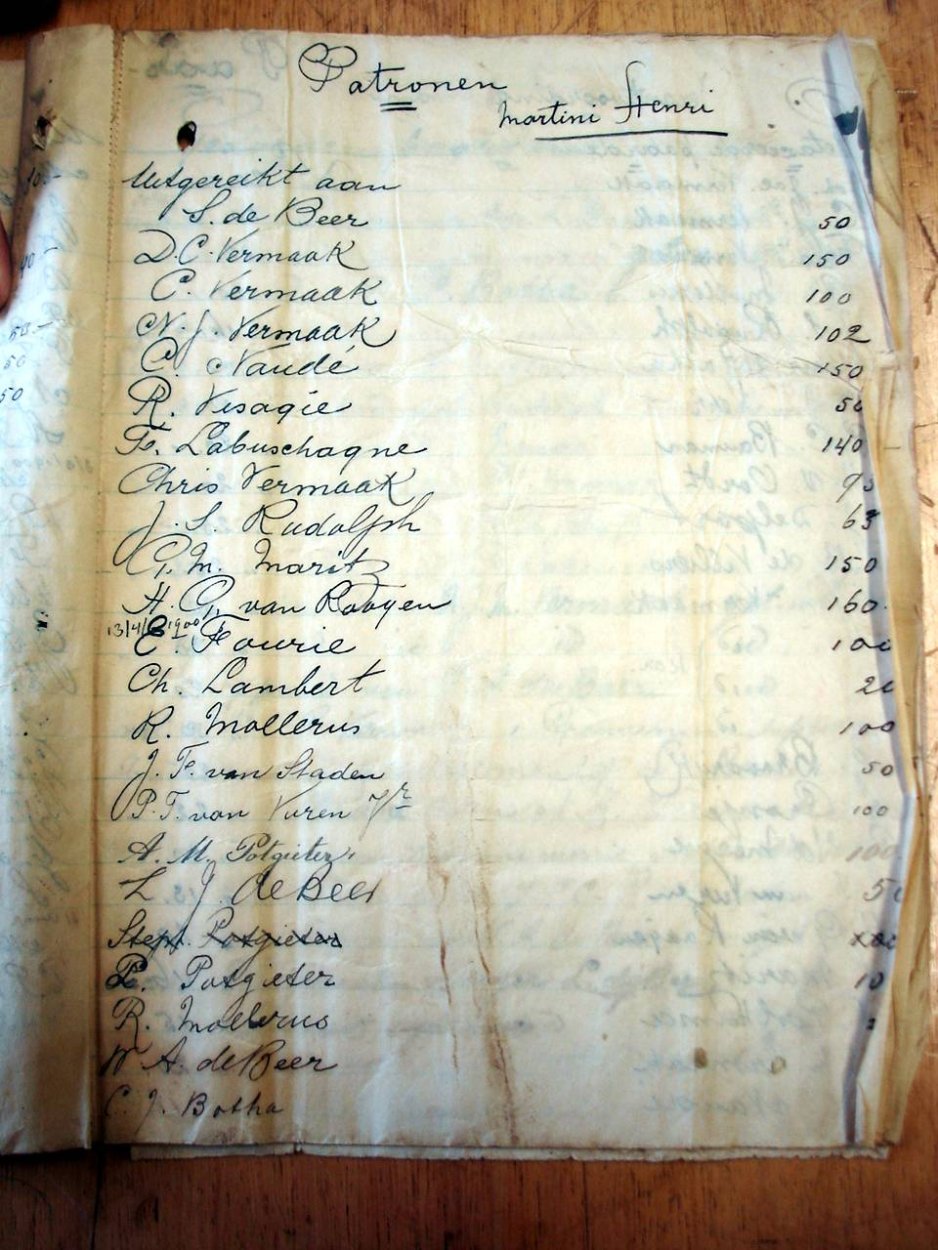 Patronen
Martini Henri
Uitgereikt aan
S. de Beer 50
D. C. Vermaak 150
C. Vermaak 100
N. J. Vermaak 102
C. Naudé 150
R. Visagie 50
F. Labuschagne 140
Chris Vermaak
J. S. Rudolph 63
G. M. Maritz 150
H. G. van Rooyen 160.
13/4/1900
C. Fourie 100
Ch. Lambert 20
R. Mollerus 100
J. F. van Staden 50
P. T. van Vuren J/r 100
A. M. Potgieter. 100
L J de Beer
Steph. Potgieter
P. Potgieter 10
R. Mollerus
W A. de Beer
C. J. Botha